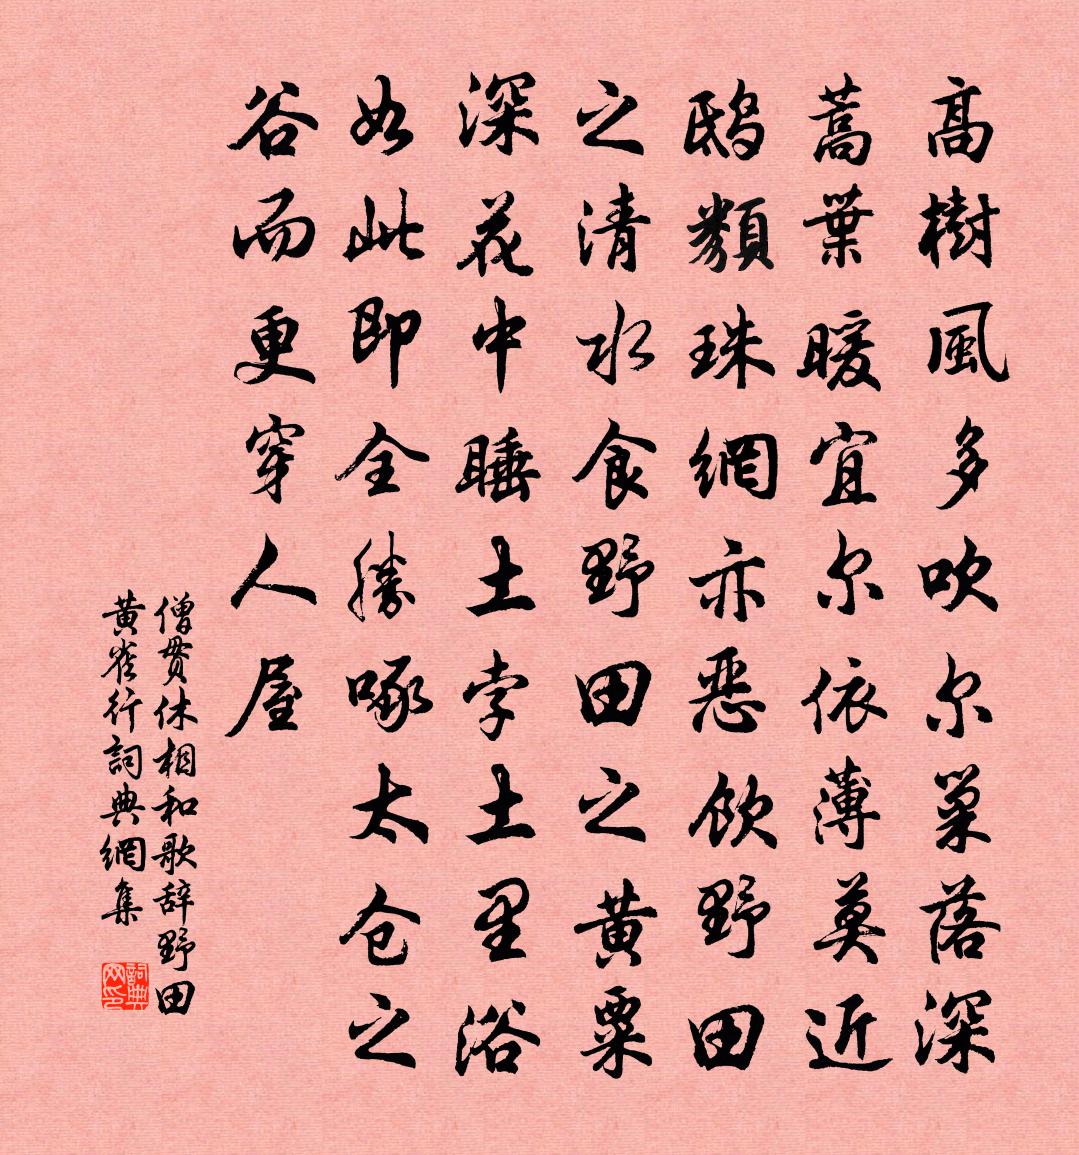 高樹風多吹尔巢落深
蒿葉暖宜尔依薄莫近
鴟類珠網亦惡飲野田
之清水食野田之黄粟
深花中睡土孛土里浴
如此即全勝啄太仓之
谷而更穿人屋
僧貫休相和歌辞野田
黄雀行詞典網集
詞典网印